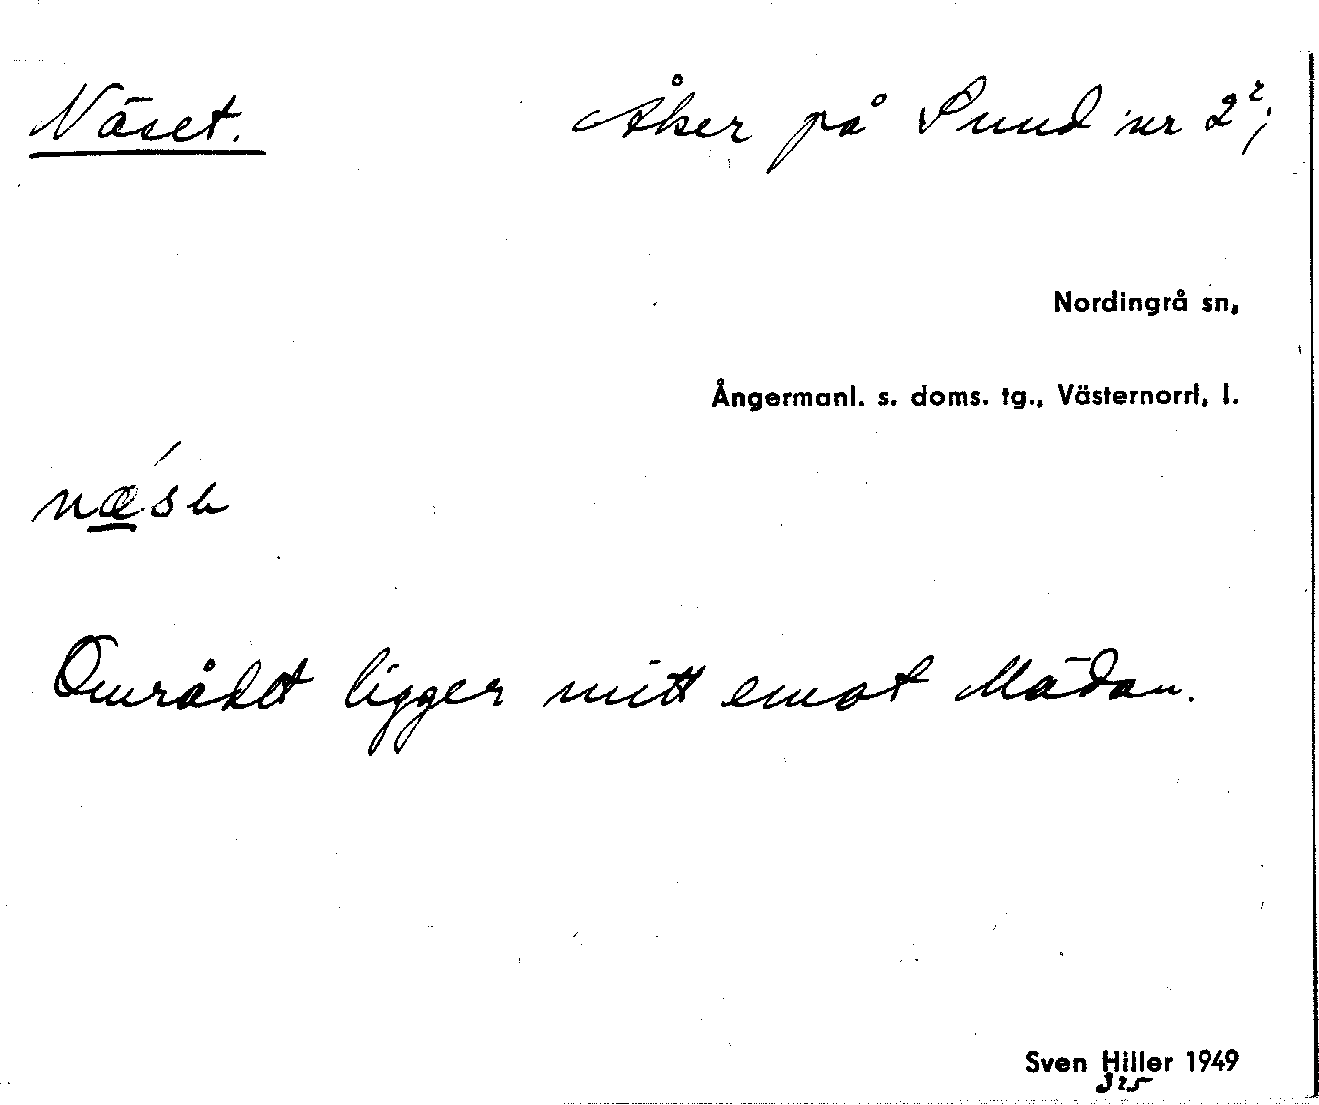 Näset. Åker på Sund nr 2²;
Nordingrå sn,
Ångermanl. s. doms. tg., Västernorrl, l.
Området ligger mitt emot Mädan.
Sven Hiller 1949
325